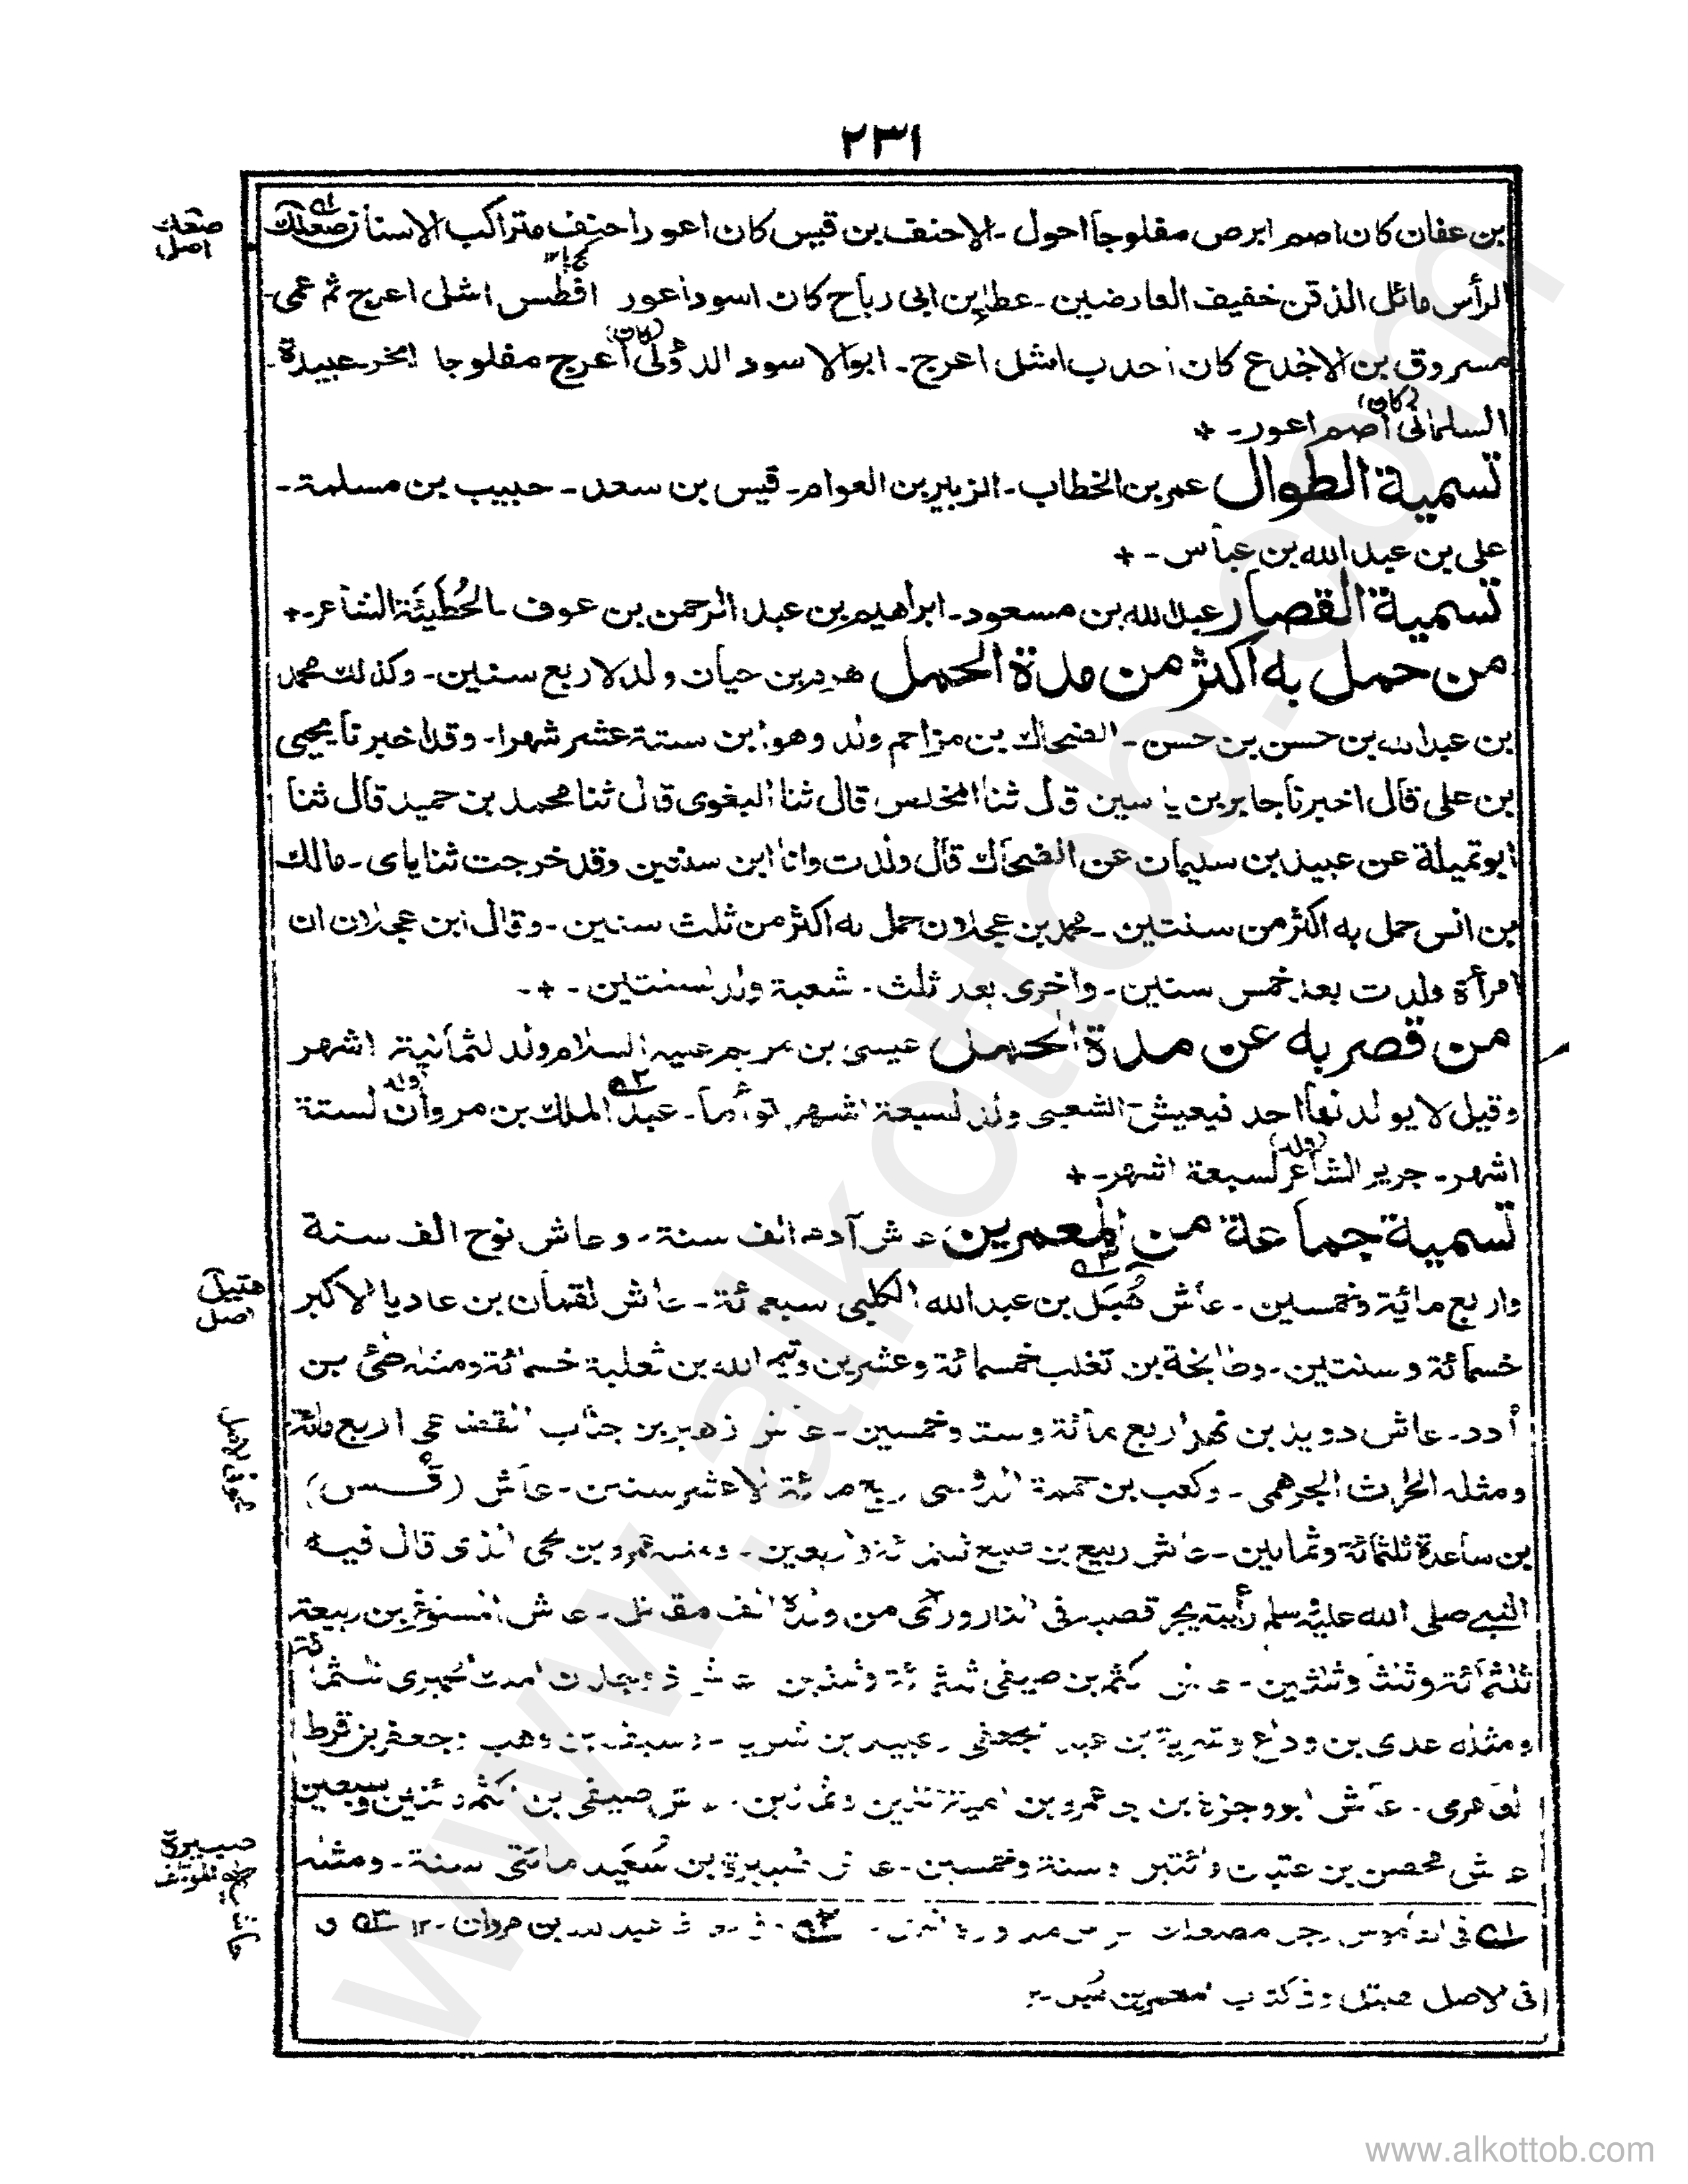 ٢٣١
بن عفان كان اصم ابرص مفلوجا احول ـ الاحنف بن قيس كان اعور احنف متراكب الاسنان صعلك
صعك
اصل
الرأس مائل الذقن خفيف العارضين ـ عطاء بن ابى رباح كان اسود اعور افطس اشل اعرج ثم عمى ـ
مسروق بن الاجدع كان احدب اشل اعرج ـ ابو الاسود الدؤلى (كان) اعرج مفلوجا ابخر ـ عبيدة ـ
السلمانى (كان) اصم اعور ـ +
تسمية الطوال عمر بن الخطاب ـ الزبير بن العوام ـ قيس بن سعد ـ حبيب بن مسلمة ـ
على بن عبد الله بن عباس ـ +
تسمية القصار عبد الله بن مسعود ـ ابراهيم بن عبد الرحمن بن عوف ـ الحُطَيئَة الشاعر ـ +
من حمل به اكثر من مدة الحمل هرم بن حيان ولد لاربع سنين ـ وكذلك محمد
بن عبد الله بن حسن بن حسن ـ الضحاك بن مزاحم ولد وهو ابن ستة عشر شهرا ـ وقد اخبرنا يحيى
بن على قال اخبرنا جابر بن ياسين قال ثنا المخلص قال ثنا البغوى قال ثنا محمد بن حميد قال ثنا
ابو تميلة عن عبيد بن سليمان عن الضحاك قال ولدت وانا ابن سنتين وقد خرجت ثناياى ـ مالك
بن انس حمل به اكثر من سنتين ـ محمد بن عجلان حمل به اكثر من ثلث سنين ـ وقال ابن عجلان ان
امرأة ولدت بعد خمس سنين ـ واخرى بعد ثلث ـ شعبة ولد لسنتين ـ + ـ
من قصر به عن مدة الحمل عيسى بن مريم عليه السلام ولد لثمانية اشهر
وقيل لا يولد لها احد فيعيش ـ الشعبى ولد لسبعة اشهر توأما ـ عبد الملك بن مروان ولد لستة
اشهر ـ جرير الشاعر (ولد) لسبعة اشهر ـ +
تسمية جماعة من المعمرين عاش آدم الف سنة ـ وعاش نوح الف سنة
واربع مائة وخمسين ـ عاش هُبَل بن عبد الله الكلبى سبعمائة ـ عاش لقمان بن عاديا الاكبر
هتبل
اصل
خسمائة وسنتين ـ وطابخة بن تغلب خمسمائة وعشرين وتيم الله بن ثعلبة خسمائة ومثله طئ بن
أدد ـ عاش دويد بن نهد اربع مائة وست وخمسين ـ عاش زهير بن جناب القضاعى اربع مائة
ومثله الحارث الجرهمى ـ وكعب بن حممة الدوسى اربع مائة الا عشر سنين ـ عاش (قُس)
بن ساعدة ثلثمائة وثمانين ـ عاش ربيع بن ضبع ثلثمائة واربعين ـ ومثله عمرو بن لحى الذى قال فيه
النبى صلى الله عليه وسلم رأيته يجر قصبه فى النار ورأى من ولده الف مقاتل ـ عاش المستوغر بن ربيعة
ثلثمائة وثلث وثلثين ـ عاش اكثم بن صيفى ثلثمائة وثلثين
ومثله عدى بن وداع وشرية بن عبد الجعفى ـ عبيد بن شرية ـ وسيف بن وهب وجعفر بن قرط
عاش محصن بن عتبان مائتين وستة وخمسين ـ عاش ضبيرة بن سُعَيد مائتى سنة ـ ومثله
صبيرة
فى الاصل